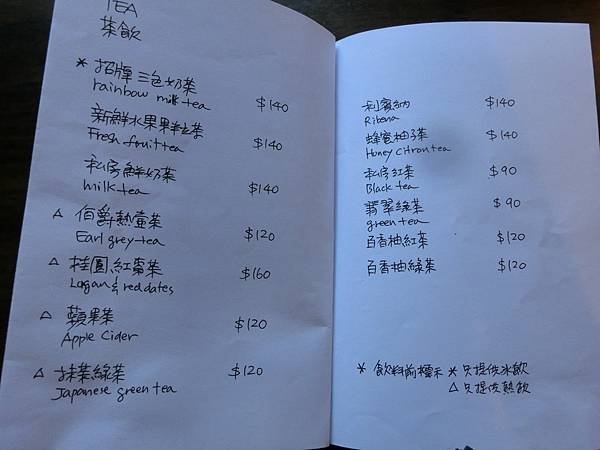 TEA
茶飲
* 招牌三色奶茶
rainbow milk tea $140
新鮮水果果粒茶
Fresh fruit tea $140
私房鮮奶茶
milk tea $140
△ 伯爵熱壺茶
Earl grey tea $120
△ 桂圓紅棗茶
Logan & red dates $160
△ 蘋果茶
Apple Cider $120
△ 抹茶綠茶
Japanese green tea $120
利賓納 $140
Ribena
蜂蜜柚子茶 $140
Honey citron tea
私房紅茶 $90
Black tea
翡翠綠茶 $90
green tea
百香柚紅茶 $120
百香柚綠茶 $120
* 飲料前標示 * 只提供冰飲
△ 只提供熱飲